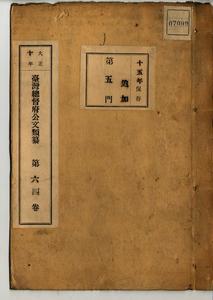 07099
十五年保存
追加
第五門
大正十年
臺灣總督府公文類纂 第六四卷